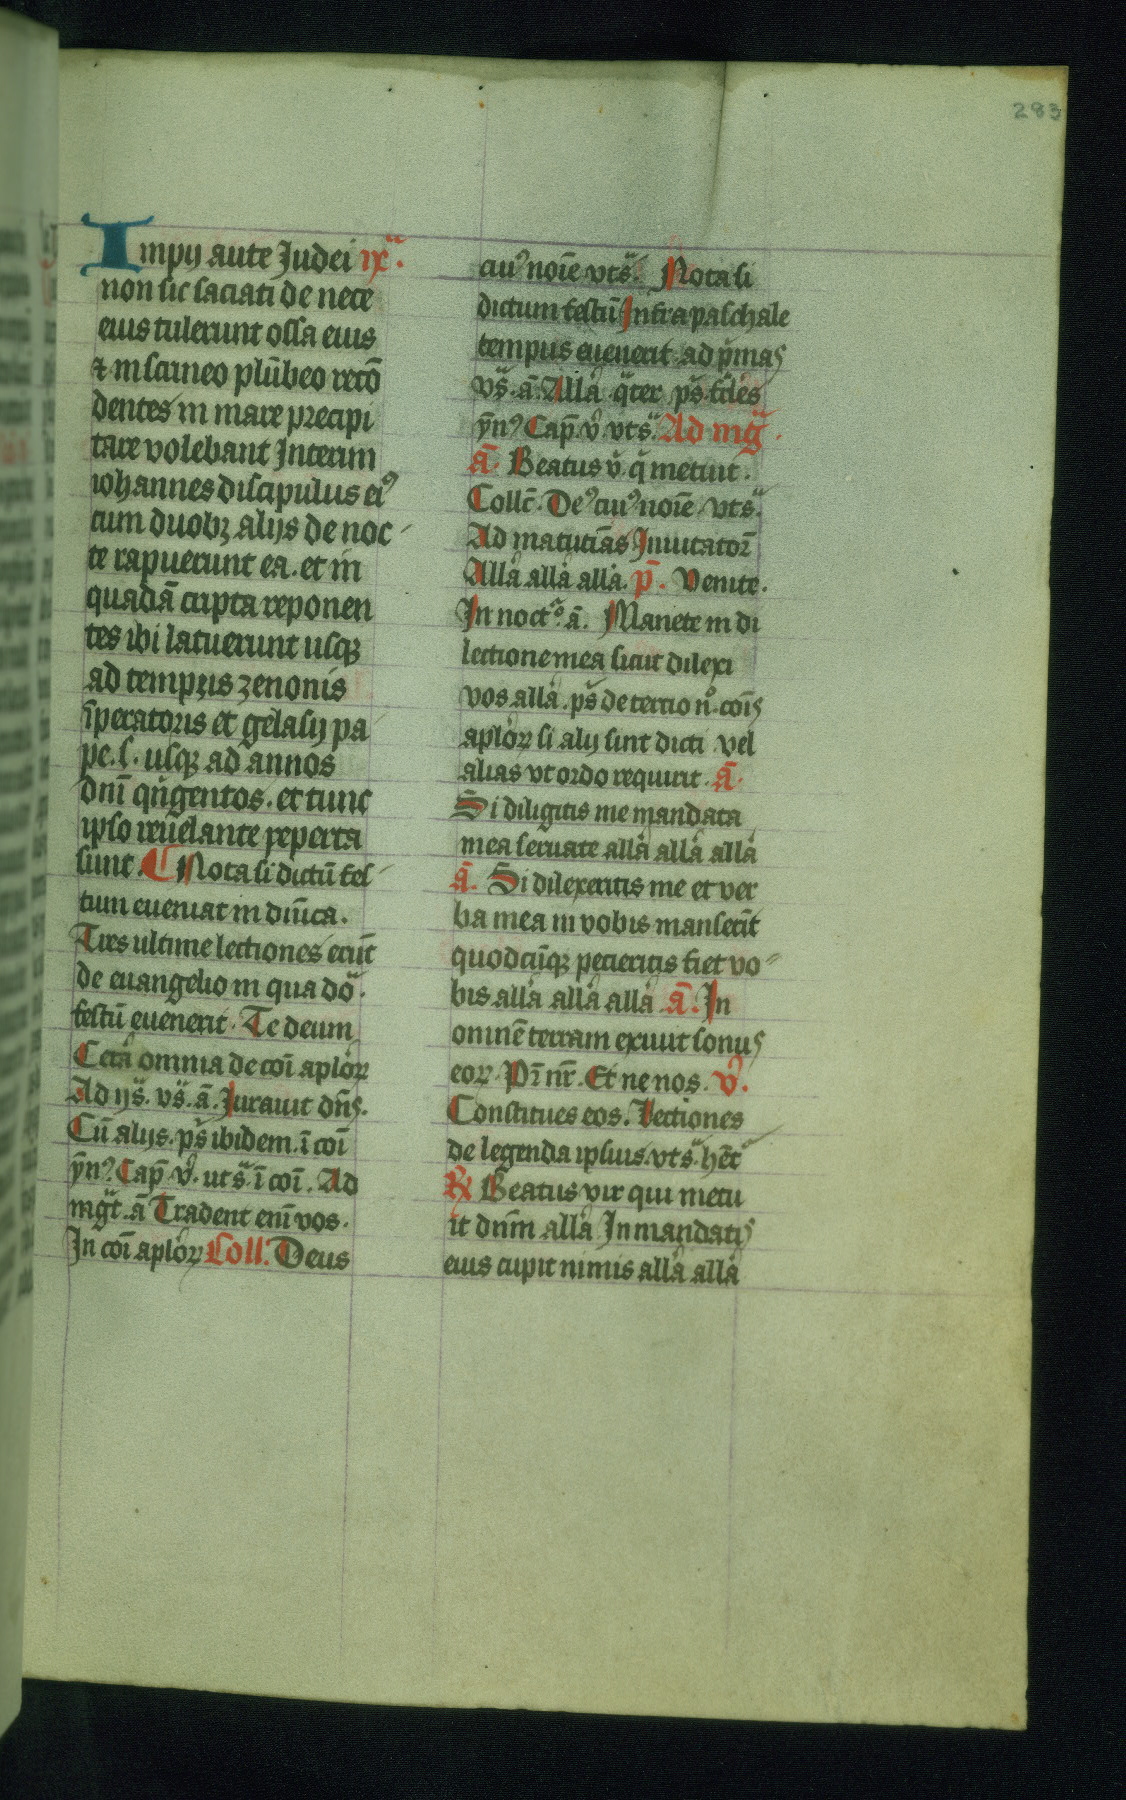 283
Impij aute Judei ixᵃ.
non sic saciati de nece
eius tulerunt ossa eius
⁊ in scrineo plūbeo recō
dentes in mare precipi
tare volebant Interim
iohannes discipulus eiꝰ
cum duobꝫ alijs de noc
te rapuerunt ea. et in
quadā cripta reponen
tes ibi latuerunt usqꝫ
ad tempus zenonis
īperatoris et gelasij pa
pe. s. usqꝫ ad annos
dnī qͥngentos. et tunc
ipso reuelante reperta
sunt. ¶ Nota si dictū fes
tum eueniat in dnīca.
Tres ultime lectiones erūt
de euangelio in qua dōᵃ.
festū euenerit. Te deum
Ceta omnia de coī aploꝝ
Ad ijˢ. vˢ. ā. Jurauit dn̄s.
Cū alijs. pˢ ibidem. ī coī
ẏnꝰ. Cap̄ v̊. utsᵃ ī coī. Ad
mgᵗ. ā Tradent enī vos.
In coī aploꝝ Coll. Deus
cuiꝰ noīe vtsᵃ. Nota si
dictum festū Infra paschale
tempus euenerit. ad pͥmas
vˢ. ā. Alla qͣter pˢ fcͥles
ẏnꝰ Cap̄. v̊ vtsᵃ. Ad mgᵗ.
ā. Beatus v̊. q̄ metuit.
Collc̄. Deꝰ cuiꝰ noīe vtsᵃ.
Ad matutīas Inuitatoꝝ
Alla alla alla. p̄. Venite.
In noctͦ. ā. Manete in di
lectione mea sicut dilexi
vos alla. pˢ de tertio n̊. coīs
aploꝝ si alij sint dicti vel
alias vt ordo requirit. ā.
Si diligitis me mandata
mea seruate alla alla alla
ā. Si dilexeritis me et ver
ba mea in vobis manserīt
quodcūqꝫ petieritis fiet vo
bis alla alla alla. ā. In
omnē terram exiuit sonus
eoꝝ. Pr̄ nr̄. Et ne nos. v̊.
Constitues eos. Lectiones
de legenda ipsius. vtsᵃ hēt
℟ Beatus vir qui metu
it dnm̄ alla In mandatis
eius cupit nimis alla alla